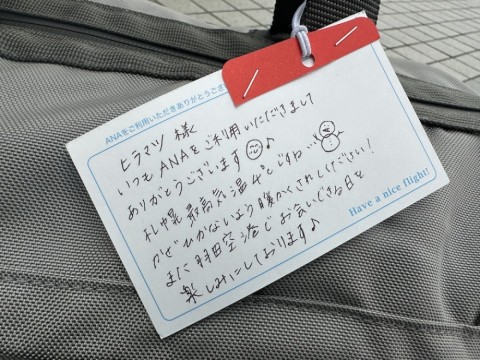 ANAをご利用いただきありがとうござい
ヒラマツ 様
いつもANAをご利用いただきまして
ありがとうございます♪
札幌 最高気温4℃ですね…
かぜひかないよう暖かくされてください!
また羽田空港でお会いできる日を
楽しみにしております♪
Have a nice flight!